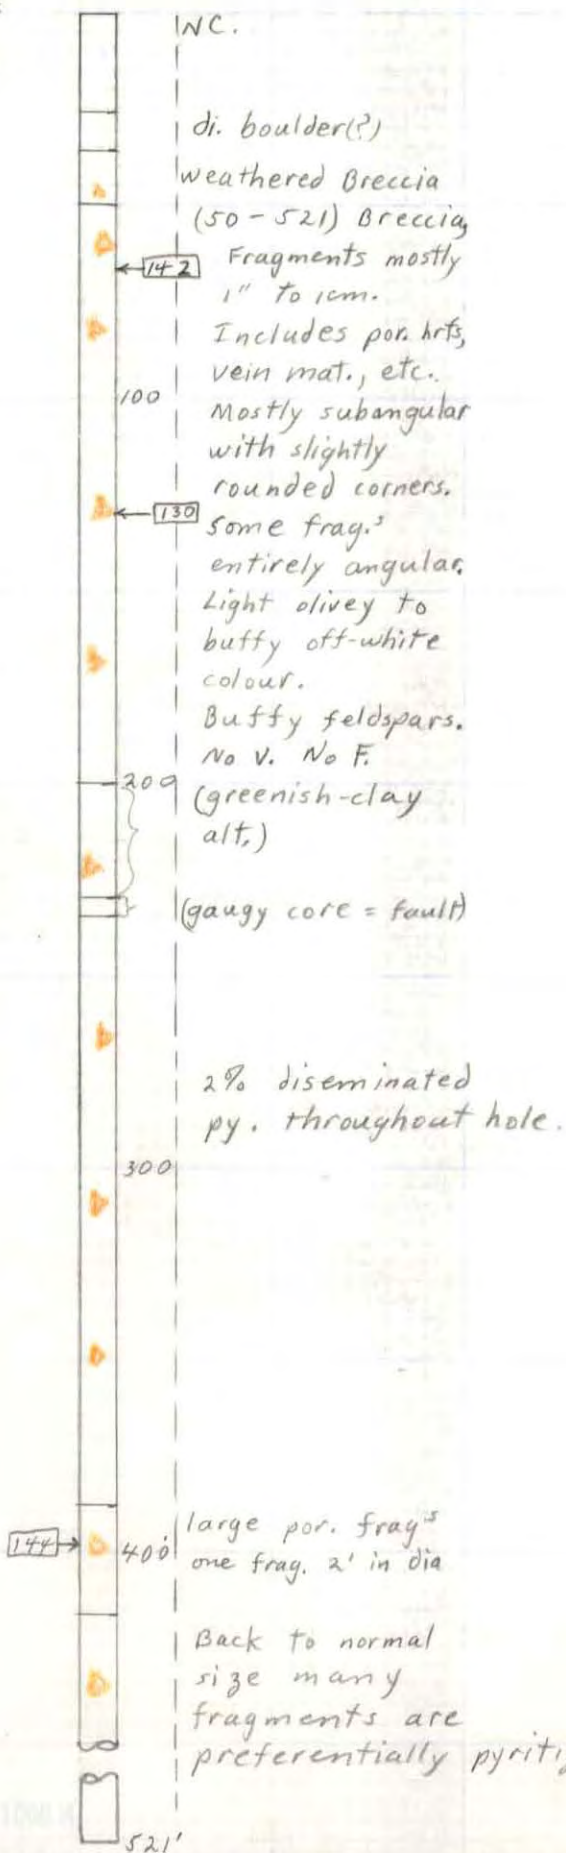 NC.
di. boulder(?)
weathered Breccia
(50-521) Breccia,
142
Fragments mostly
1" to 1cm.
Includes por. hrfs,
vein mat., etc.
100
Mostly subangular
with slightly
rounded corners.
130
Some frag.s
entirely angular.
Light olivey to
buffy off-white
colour.
Buffy feldspars.
No V. No F.
200
(greenish-clay
alt.)
(gaugy core = fault)
2% diseminated
py. throughout hole.
300
large por. frag.s
144
400
one frag. 2' in dia
Back to normal
size many
fragments are
preferentially
521'